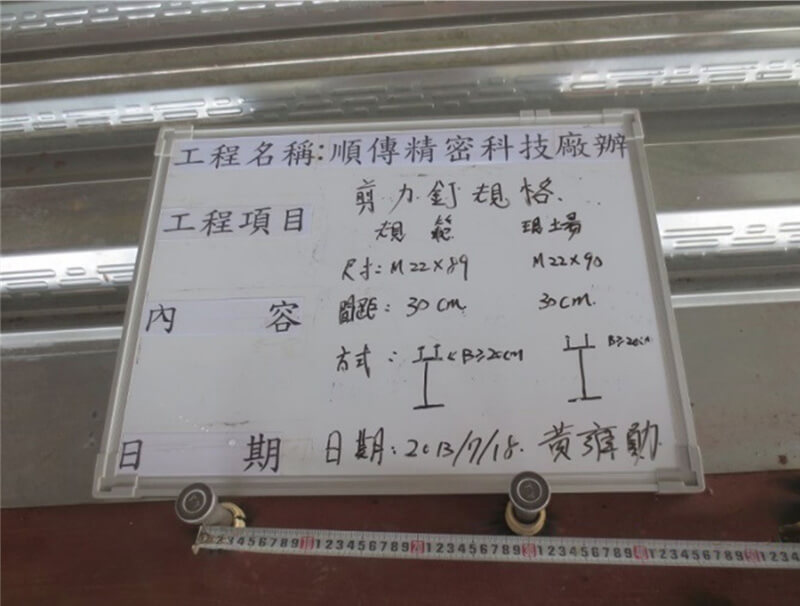 工程名稱:順傳精密科技廠辦
工程項目 剪力釘規格.
規範 現場
內容 尺寸:M22×89 M22×90
間距:30cm. 30cm.
方式: B≥20cm B≥20cm
日期 日期:2013/7/18. 黃雍勛
1 2 3 4 5 6 7 8 9 1 2 3 4 5 6 7 8 9 1 2 3 4 5 6 7 8 9 1 2 3 4 5 6 7 8 9 1 2 3 4 5 6 7 8 9 1 2 3 4